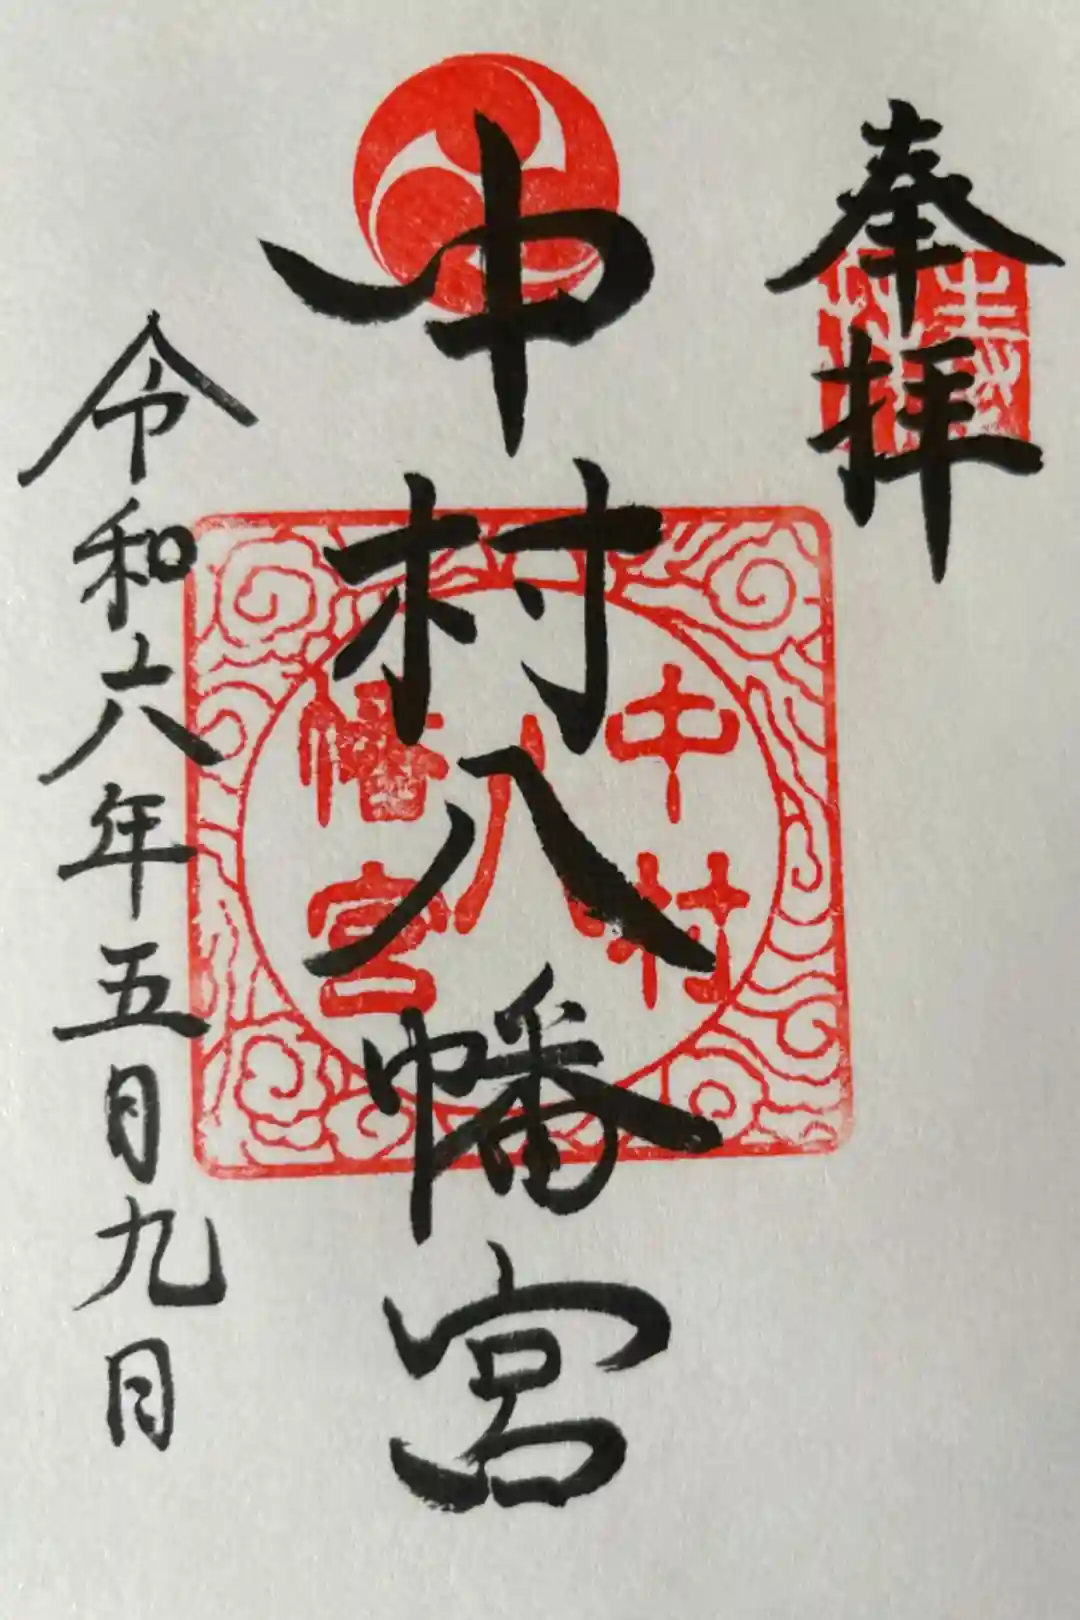 奉拝
中村八幡宮
中村八幡宮
令和六年五月九日